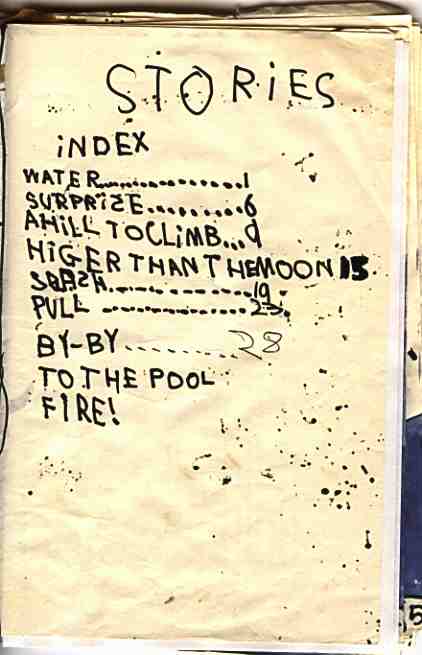 STORIES
iNDEX
WATER...............1
SURPRIZE.........6
A HILL TO CLiMB...9
HiGER THAN THE MOON 15
...............19
PULL ...............23.
BY-BY.........28
TO THE POOL
FIRE!
5